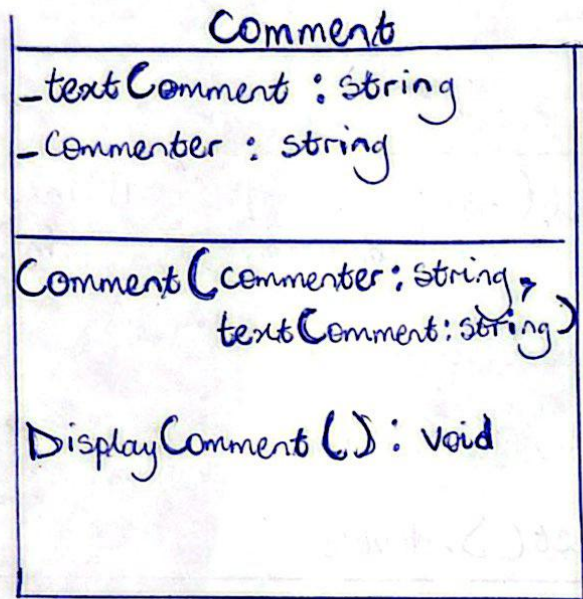 Comment
_textComment : string
_Commenter : string
Comment(commenter: string,
textComment: string)
DisplayComment() : void